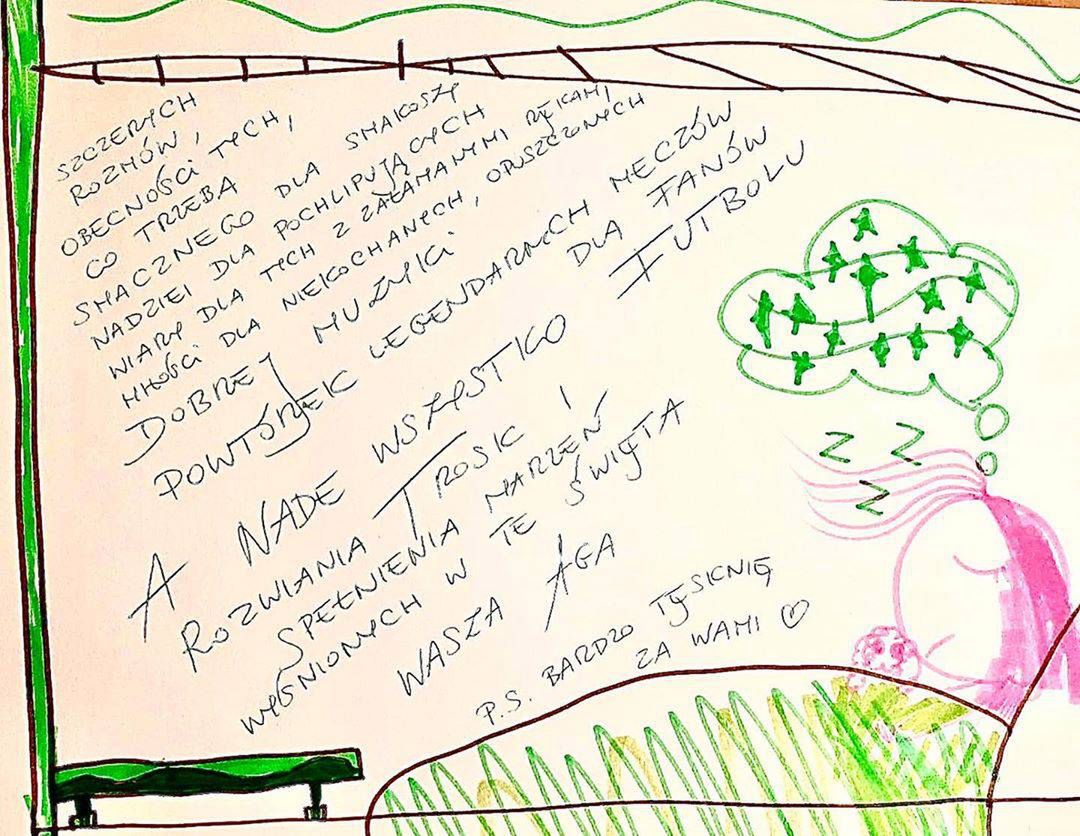 SZCZERYCH
ROZMÓW,
OBECNOŚCI TYCH,
CO TRZEBA
SMACZNEGO DLA SMAKOSZY
NADZIEI DLA POCHLIPUJĄCYCH
WIARY DLA TYCH Z ZAŁAMANYMI RĘKAMI,
MIŁOŚCI DLA NIEKOCHANYCH, OPUSZCZONYCH
DOBREJ MUZYKI
POWTÓREK LEGENDARNYCH MECZÓW
DLA FANÓW
FUTBOLU
A NADE WSZYSTKO
ROZWIANIA TROSK I
SPEŁNIENIA MARZEŃ
WYŚNIONYCH W TE ŚWIĘTA
WASZA AGA
P.S. BARDZO TĘSKNIĘ
ZA WAMI ♡
Z Z
Z